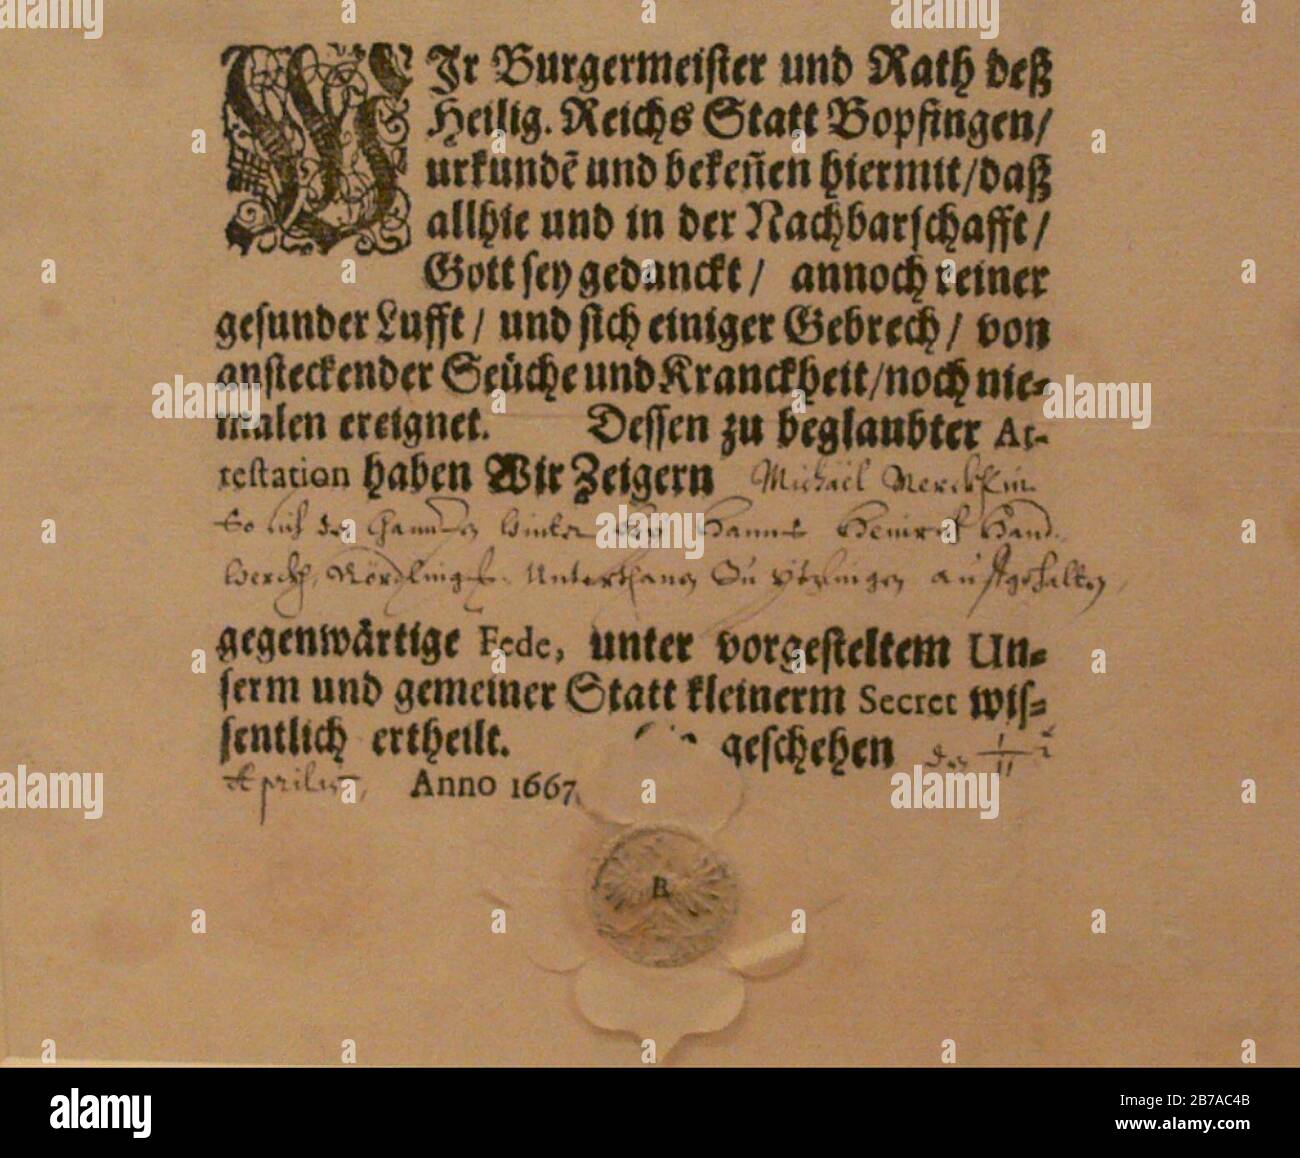 WIr Burgermeister und Rath deß
Heilig. Reichs Statt Bopfingen/
urkundē und bekeñen hiermit/daß
allhie und in der Nachbarschafft/
Gott sey gedanckt/ annoch reiner
gesunder Lufft/ und sich einiger Gebrech/ von
ansteckender Seüche und Kranckheit/noch nie-
malen ereignet. Dessen zu beglaubter At-
testation haben Wir Zeigern Michäel
So sich Hannß Heinrich Hand
Unterthanen Zu auffgehalten,
gegenwärtige Fede, unter vorgesteltem Un-
serm und gemeiner Statt kleinerm Secret wis-
sentlich ertheilt. geschehen den 1/11
Aprilis, Anno 1667
R
a alamy
alamy
Image ID: 2B7AC4B
www.alamy.com